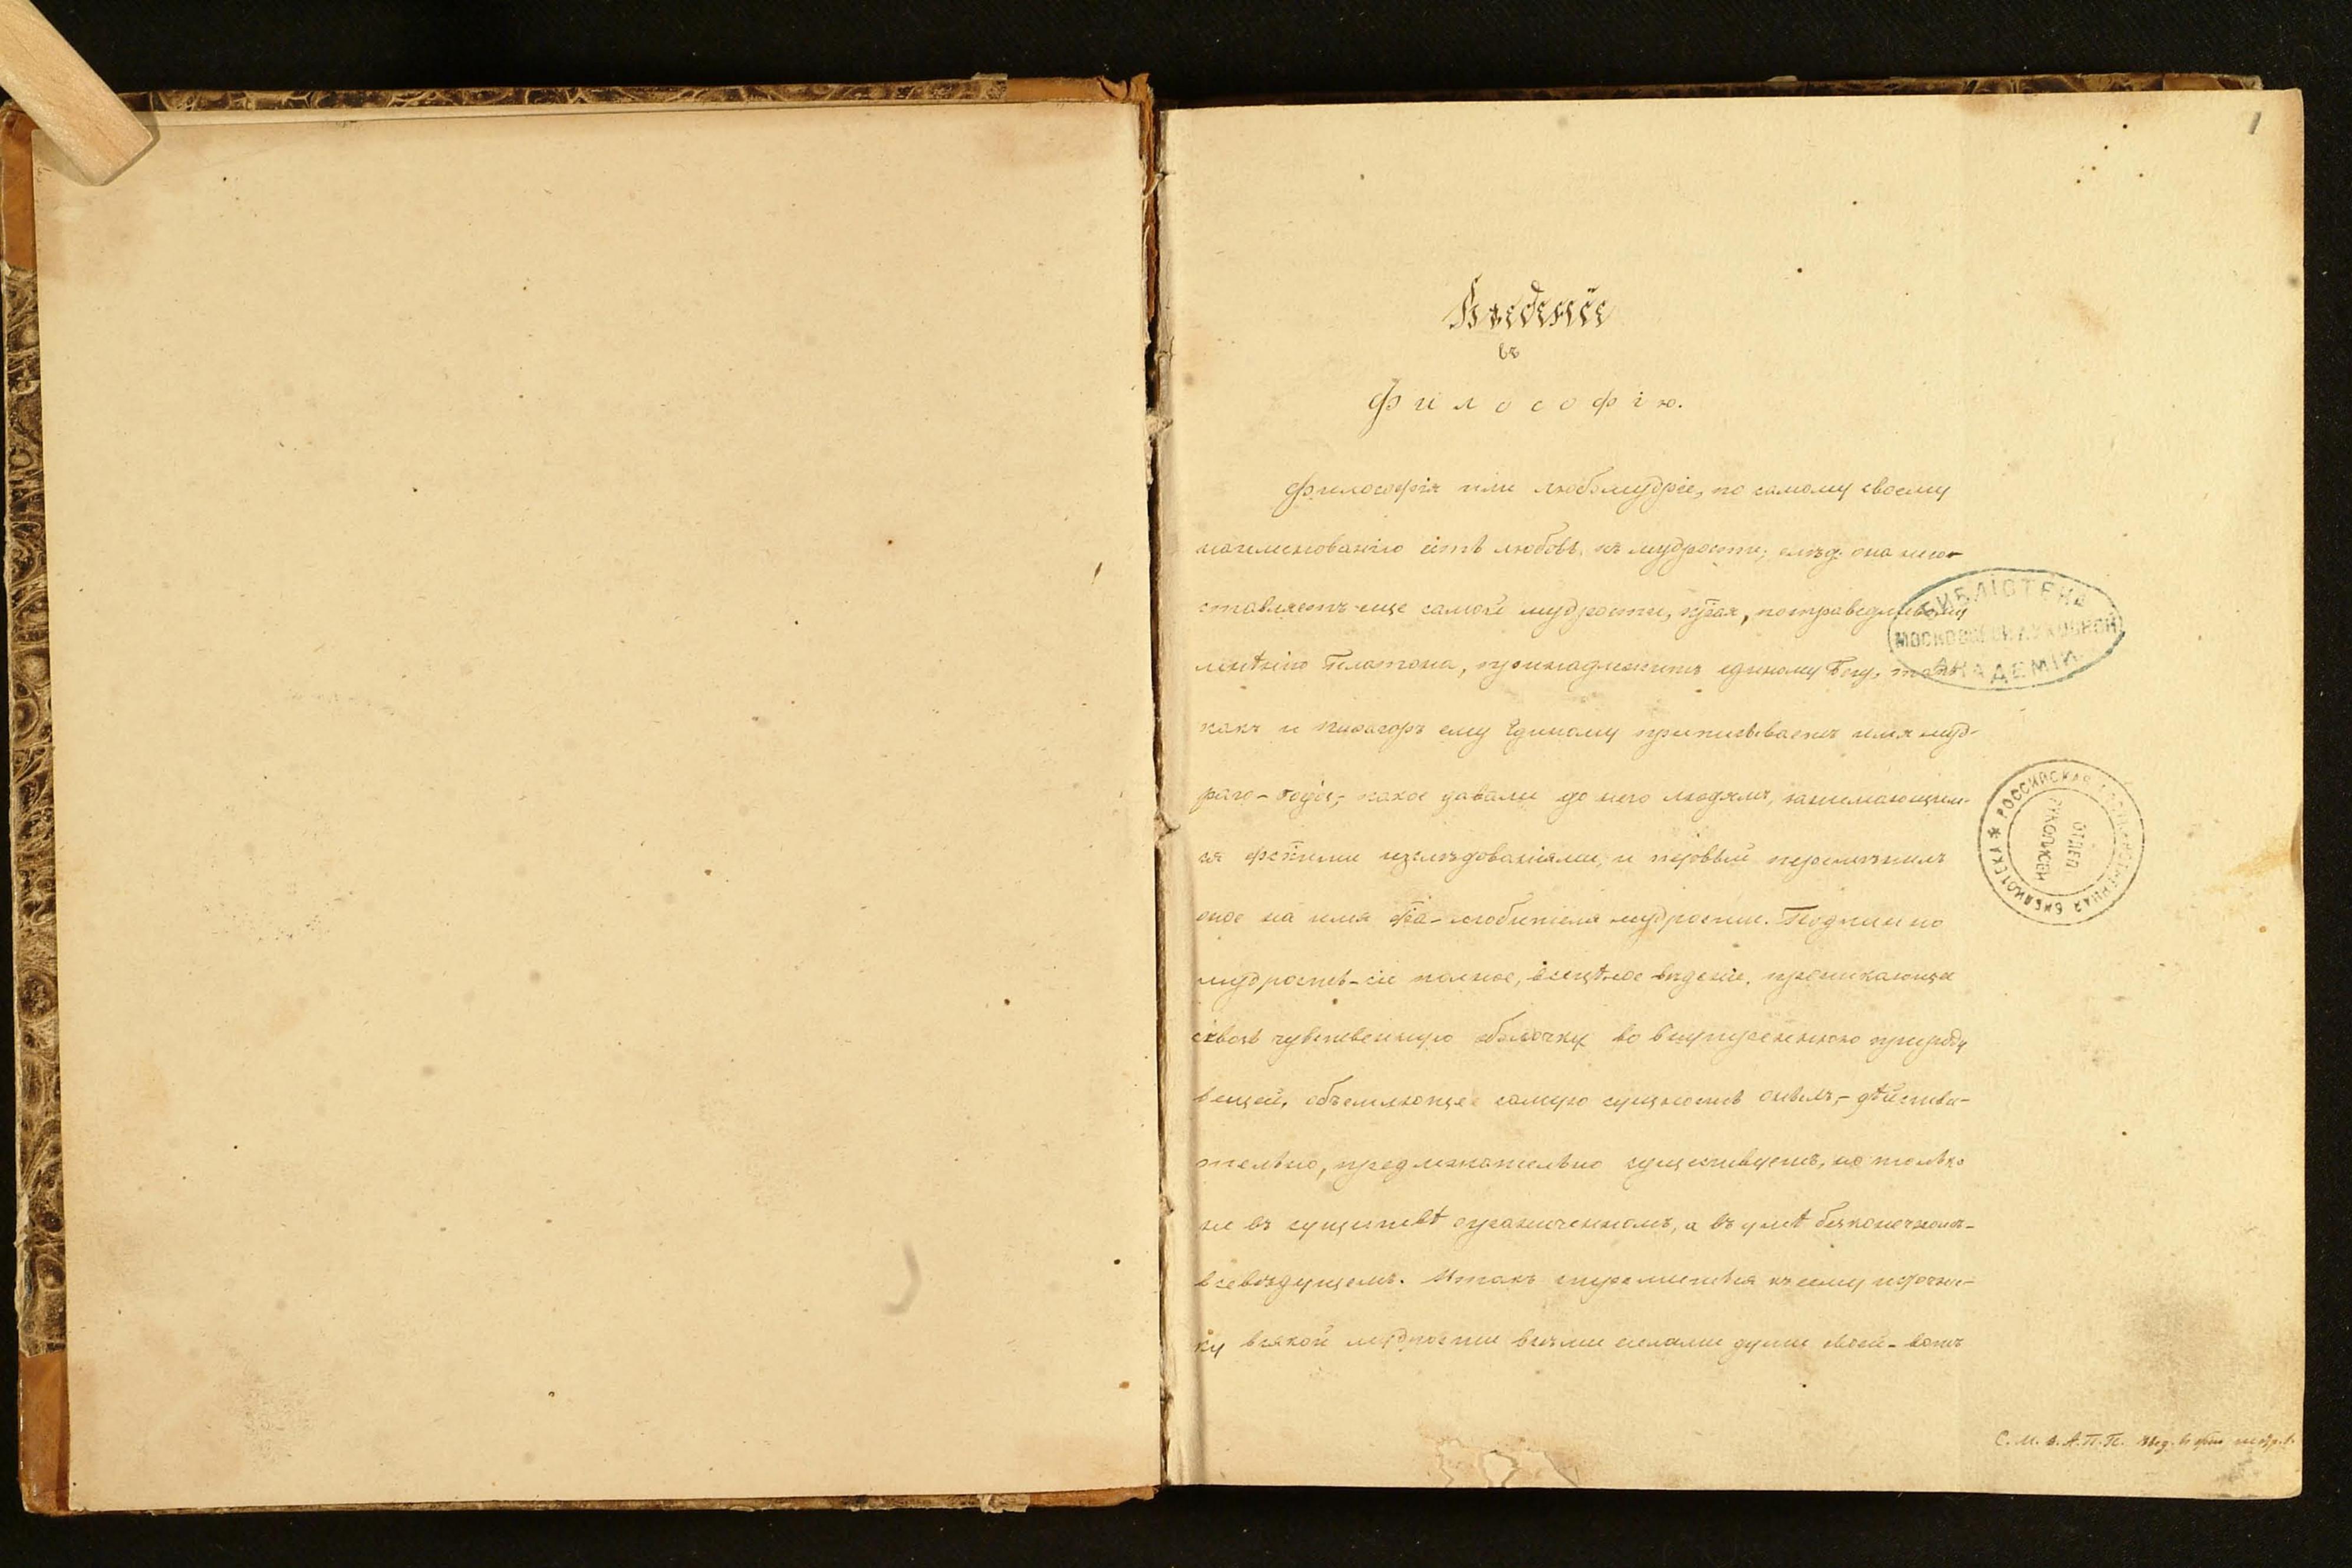 1
Введеніе
въ
Философію.
Философія или любомудріе, по самому своему
наименованію есть любовь къ мудрости; слѣд. она несо-
ставляетъ еще самой мудрости, поправедливому
мнѣнію Платона, принадлежитъ единому Богу, такъ
какъ и Пиѳагоръ ему Единому приписываетъ имя муд-
раго - σοφὸς, какое давали до него людямъ, занимающим-
ся изслѣдованіями, и первый перемѣнилъ
оное на имя любителя мудрости. Подлинно
мудрость - сіе полное, всецѣлое вѣденіе, проникающее
сквозь чувственную оболочку во внутреннюю природу
вещей, объемлющее самую сущность оныхъ, - дѣйстви-
тельно, предлежательно существуетъ, но только
не въ существѣ ограниченномъ, а въ умѣ безконечномъ -
всевѣдущемъ. Итакъ стремиться къ сему источни-
ку всякой мудрости всѣми силами души своей - вотъ
БИБЛІОТЕКА
МОСКОВСКОЙ ДУХОВНОЙ
АКАДЕМІИ
РОССИЙСКАЯ ГОСУДАРСТВЕННАЯ БИБЛИОТЕКА *
ОТДЕЛ
РУКОПИСЕЙ
С. М. д. А. П. П.